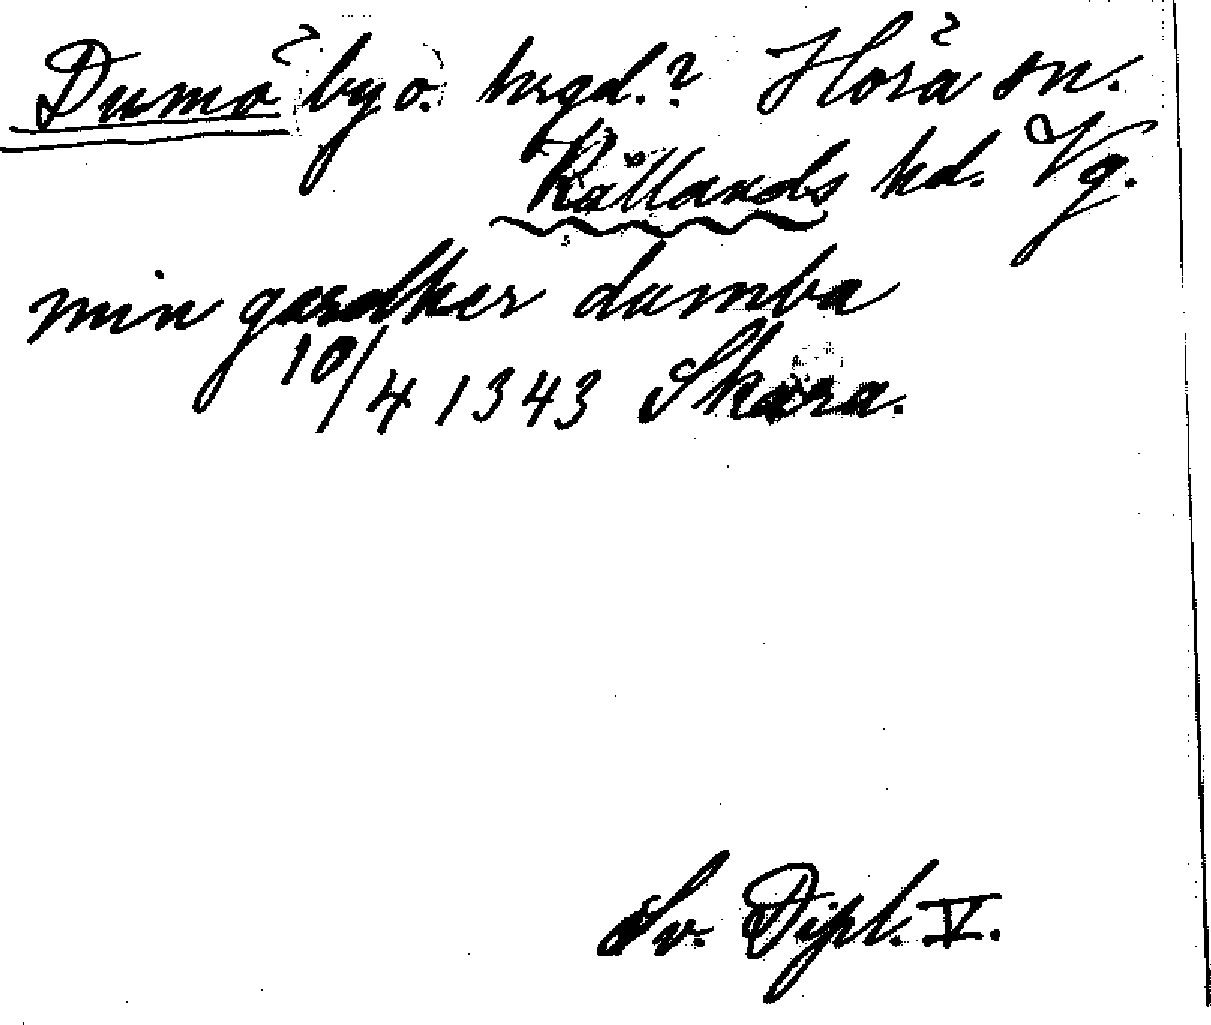 Duma? by o. hrgd.? Hora? sn.
Kållands hd. Vg.
min gardher dumba
10/4 1343 Skara.
Sv. Dipl. V.